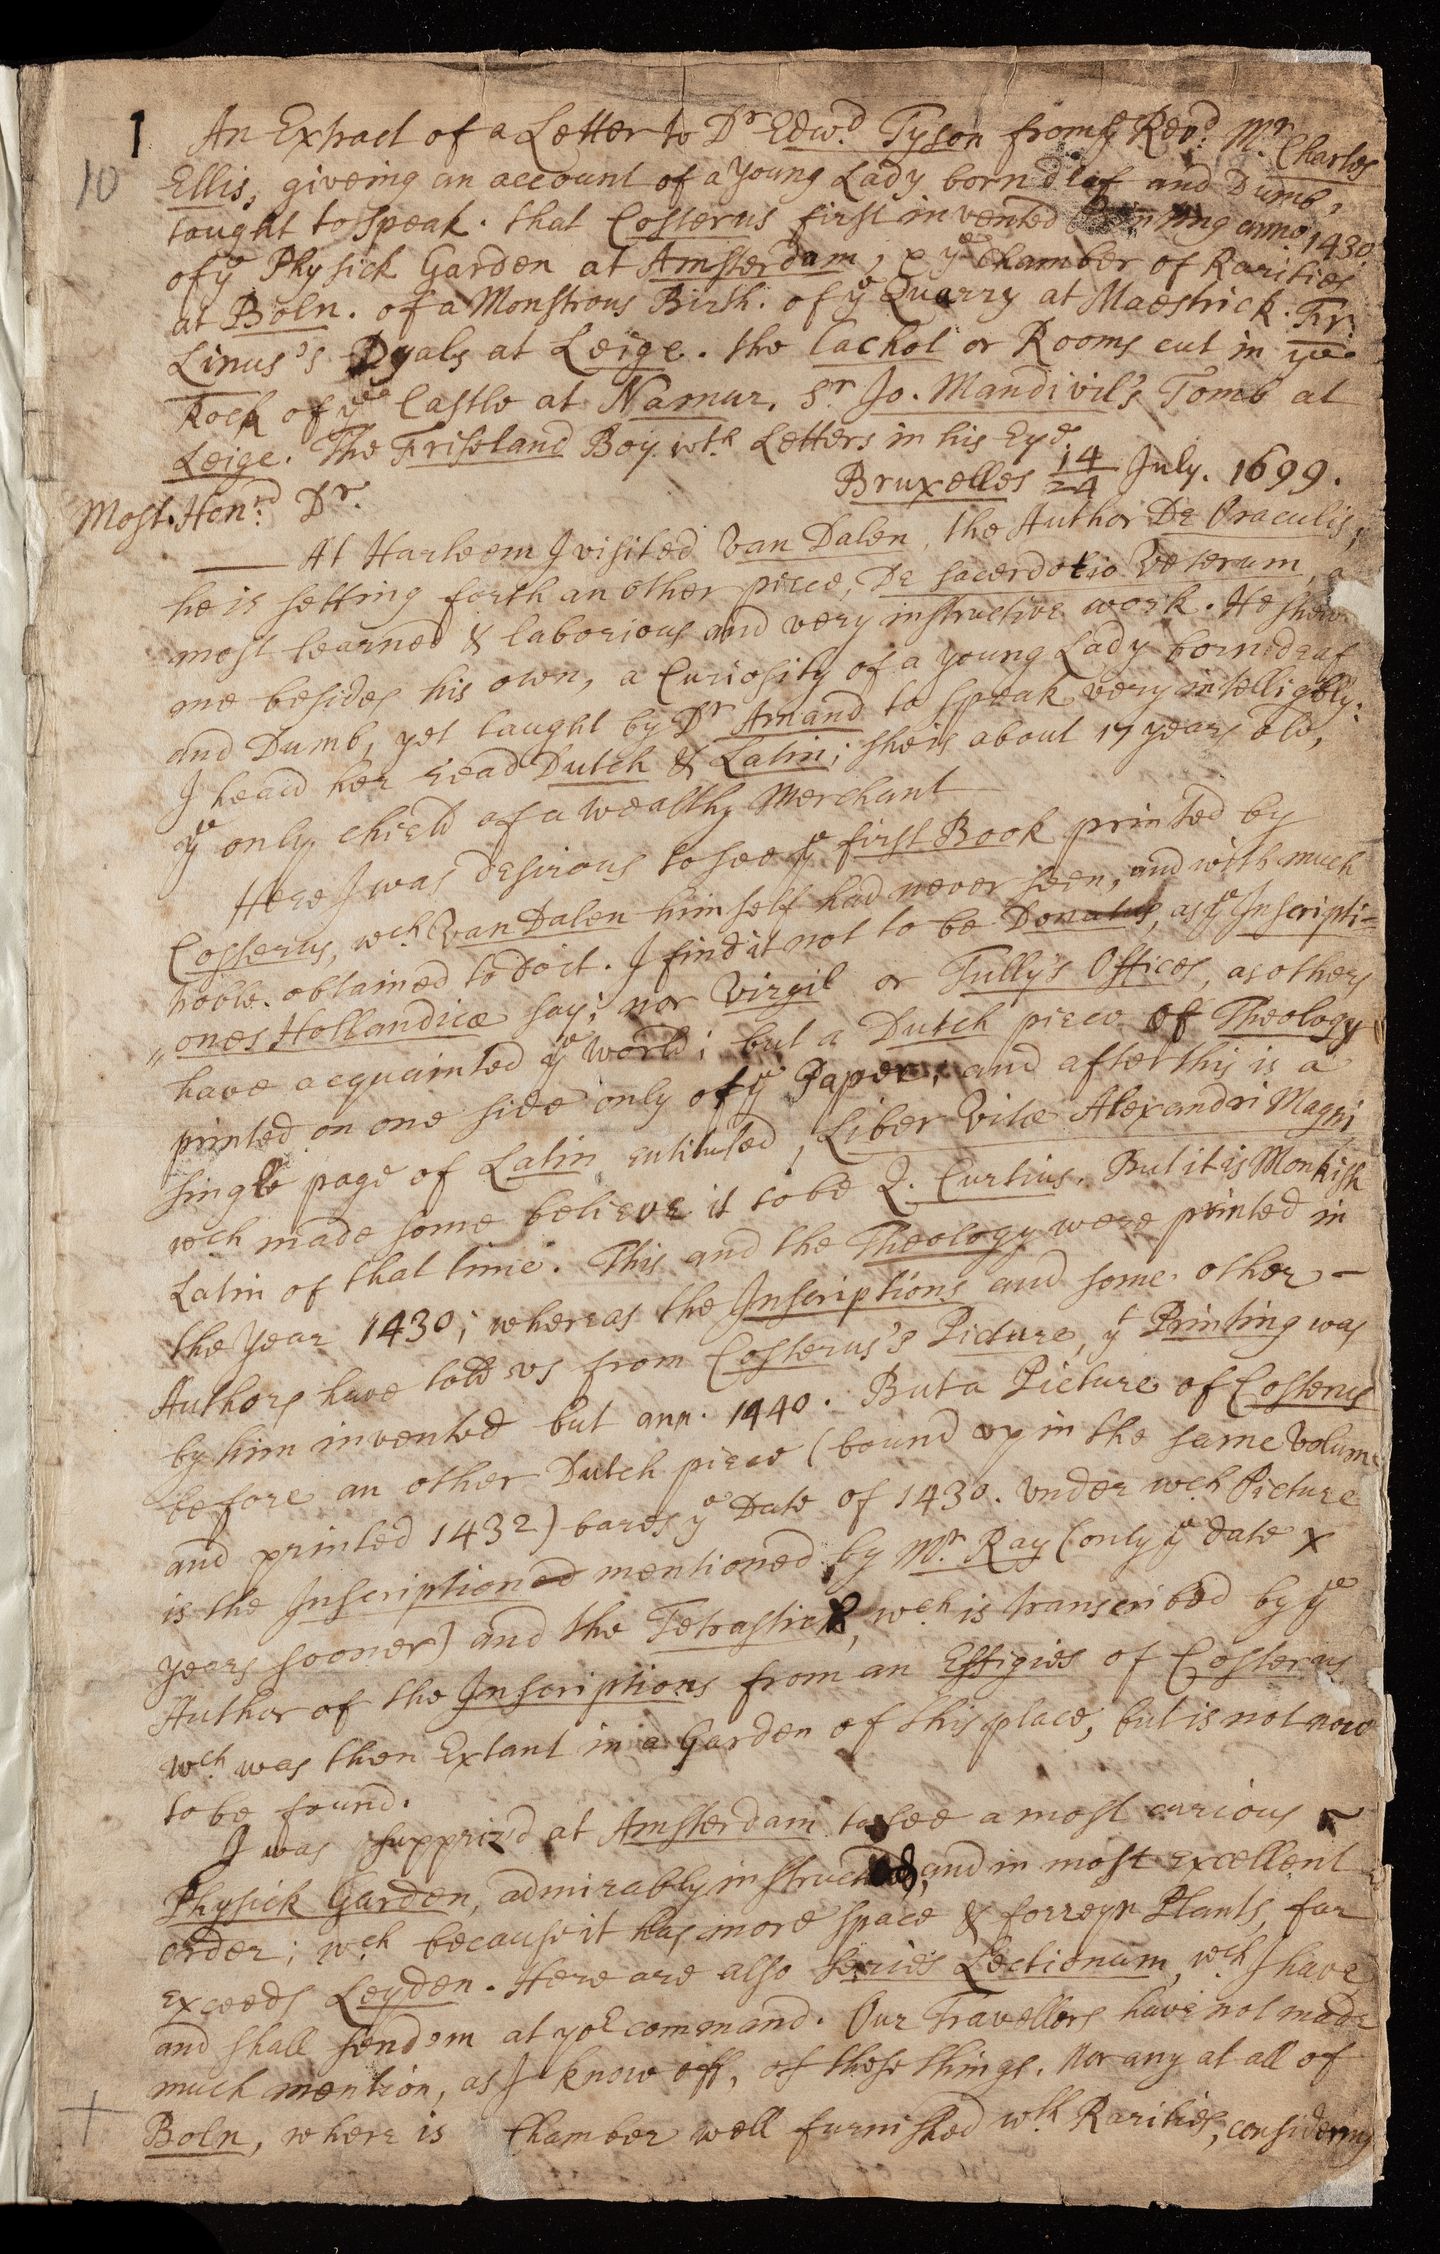 1
10
An Extract of a Letter to Dr Edwd. Tyson from ye Revd. Mr Charles
Ellis, giveing an account of a Young Lady born deaf and Dumb,
tought to speak. that Costerus first invented Printing anno. 1430
of ye Physick Garden at Amsterdam, & ye Chamber of Rarities
at Boln. of a Monstrous Birth. of ye Quarry at Maestrick. Fr.
Linus's Dyals at Leige. the Cachot or Rooms cut in ye
Rock of ye Castle at Namur. Sr Jo. Mandivil's Tomb at
Leige. The Friseland Boy wth Letters in his Eye.
Bruxelles 14/24 July. 1699.
Most. Honrd Dr.
At Harleem I visited Van Dalen, the Author De Oraculis,
he is setting forth another piece, De sacerdotio Veterum, a
most learned & laborious and very instructive work. He shew
me besides his own, a Curiosity of a young Lady born deaf
and Dumb, yet taught by Dr Amand to speak very intelligibly.
I heard her read Dutch & Latin; she is about 17 years old,
ye only chield of a wealthy Merchant
Here I was desirous to see ye first Book printed by
Costerus, wch Van Dalen himself had never seen, and with much
troble. obtained to do it. I find it not to be Donatus, as ye Inscripti=
"ones Hollandicæ say; nor Virgil or Tully's Offices, as others
have acquainted ye world; but a Dutch piece of Theology
printed on one side only of ye Paper; and after this is a
single page of Latin entituled, Liber Vitæ Alexandri Magni
wch made some believe it to be Q. Curtius. But it is Monkish
Latin of that time. This and the Theology were printed in
the year 1430; whereas the Inscriptions and some other –
Authors have told us from Costerus's Picture, yt Printing was
by him invented but ann. 1440. But a Picture of Costerus
before an other Dutch piece (bound up in the same Volume
and printed 1432) bares ye Date of 1430. Under wch Picture
is the Inscription mentioned by Mr Ray (only ye date X
years sooner) and the Tetrastick, wch is transcribed by ye
Author of the Inscriptions from an Effigies of Costerus
wch was then Extant in a Garden of this place, but is not now
to be found.
I was supprized at Amsterdam to see a most curious –
Physick Garden, admirably instructed, and in most excellent
order; wch because it has more space & forreyn Plants, far
exceeds Leyden. Here are also series Lectionum, wch I have
and shall send em at yor command. Our Travellers have not made
much mention, as I know off, of these things. Nor any at all of
Boln, where is Chamber well furnished wth Rarities, considering